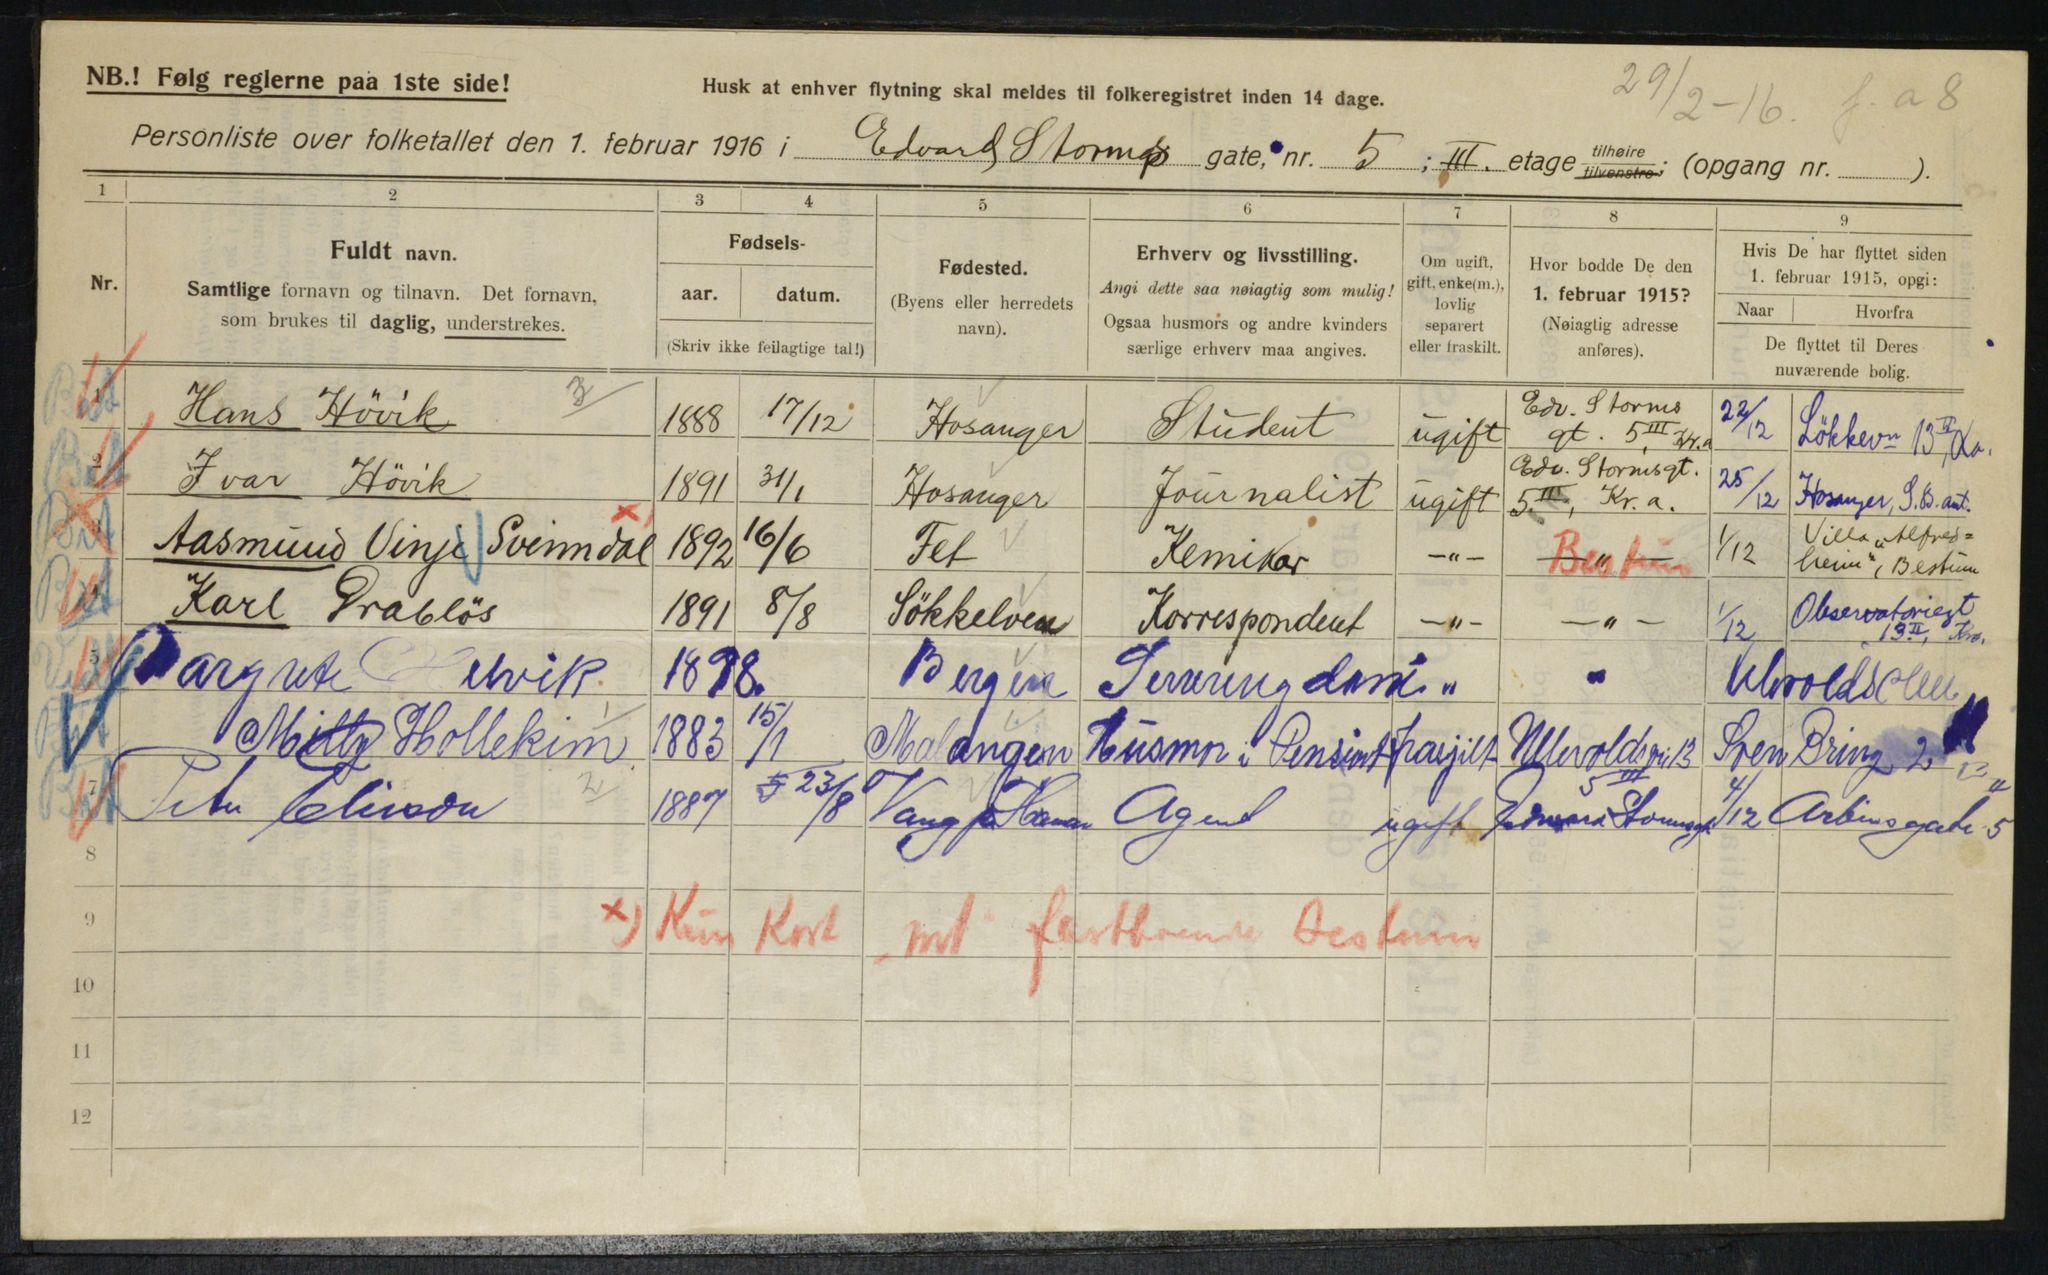 29/2-16. f. a 8
NB.! Følg reglerne paa 1ste side!
Husk at enhver flytning skal meldes til folkeregistret inden 14 dage.
Personliste over folketallet den 1. februar 1916 i Edvard Storms gate, nr. 5 ; III. etage tilhøire tilvenstre; (opgang nr. ).
1 2 3 4 5 6 7 8 9
Nr.
Fuldt navn.
Samtlige fornavn og tilnavn. Det fornavn,
som brukes til daglig, understrekes.
Fødsels-
aar. datum.
(Skriv ikke feilagtige tal!)
Fødested.
(Byens eller herredets
navn).
Erhverv og livsstilling.
Angi dette saa nøiagtig som mulig!
Ogsaa husmors og andre kvinders
særlige erhverv maa angives.
Om ugift,
gift, enke(m.),
lovlig
separert
eller fraskilt.
Hvor bodde De den
1. februar 1915?
(Nøiagtig adresse
anføres).
Hvis De har flyttet siden
1. februar 1915, opgi:
Naar Hvorfra
De flyttet til Deres
nuværende bolig.
1 Hans Hövik 1888 17/12 Hosanger Student ugift Edv. Storms gt. 5 III Kr.a 22/12 Lökkevn 13
2 Ivar Hövik 1891 31/1 Hosanger Journalist ugift Edv. Stormsgt. 5 III, Kr.a. 25/12 Hosanger, S.B. amt.
3 Aasmund Vinje Svinndal x) 1892 16/6 Fet Kemiker —"— —"— Bestum 1/12 Villa „Alfredheim", Bestum
4 Karl Drabløs 1891 8/8 Sökkelven Korrespondent —"— —"— 1/12 Observatoriegt 13 II, Kra.
5 Margrete 1898. Bergen " "
Mitty Hollekim 1883 15/1 Malangen Husmor i Pensionat fraskilt Ullevoldsvei 13 Sven Bring 2
7 1887 23/8 Vang Agent ugift 5 III Edvard Stormsgt 4/12 5
8
9
x) Kun Kort, fastboende Bestum
10
11
12